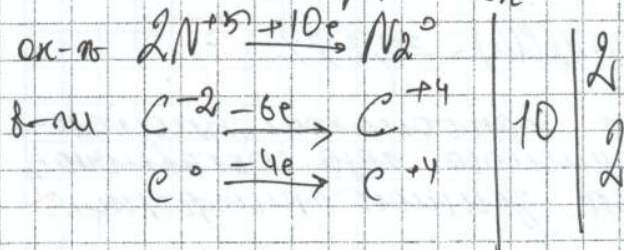 ок-ль 2N⁺⁵ +10e → N₂⁰ | | 2
в-ли C⁻² -6e → C⁺⁴ | 10 | 2
C⁰ 4e → C⁺⁴